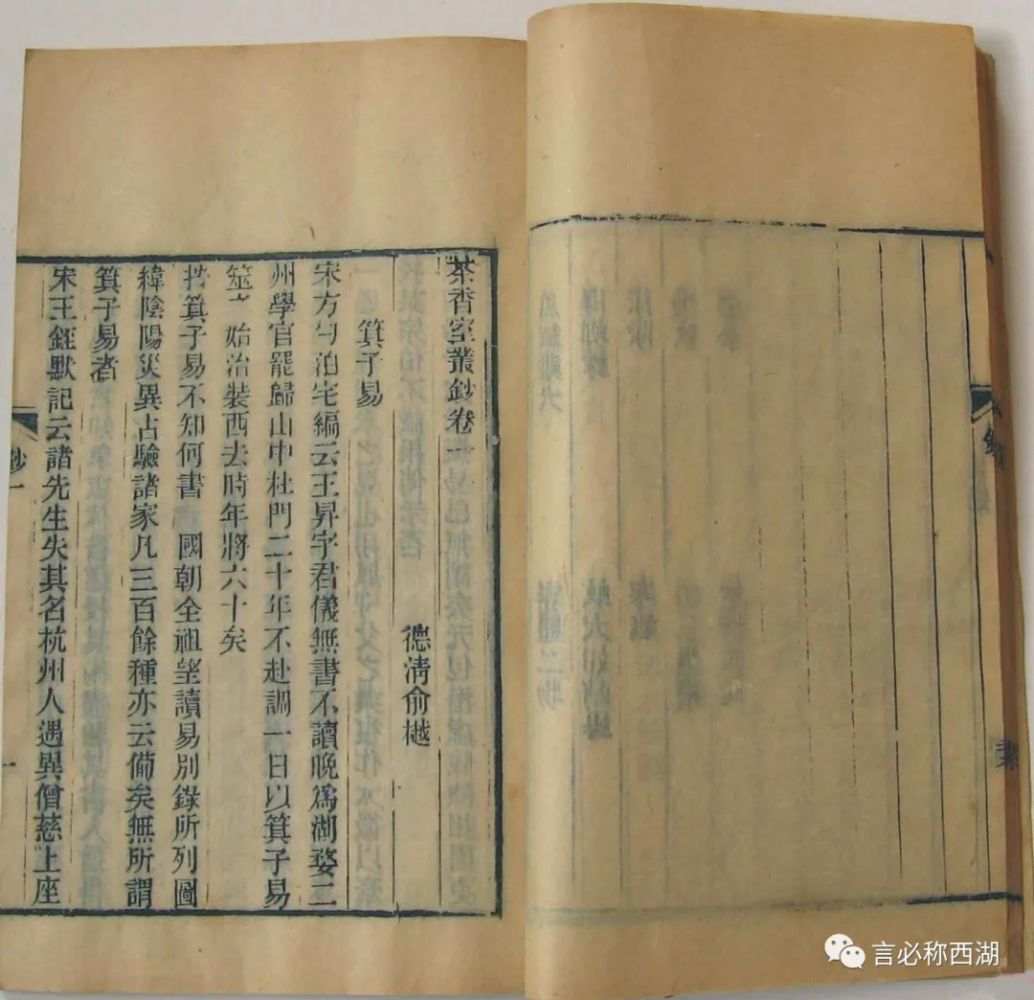 茶香室叢鈔卷一
德淸俞樾
箕子易
宋方勺泊宅編云王昇字君儀無書不讀晚爲湖婺二
州學官罷歸山中杜門二十年不赴調一日以箕子易
筮之始治裝西去時年將六十矣
按箕子易不知何書國朝全祖望讀易別錄所列圖
緯陰陽災異占驗諸家凡三百餘種亦云備矣無所謂
箕子易者
宋王銍默記云諸先生失其名杭州人遇異僧慈上座
鈔一
一
言必称西湖